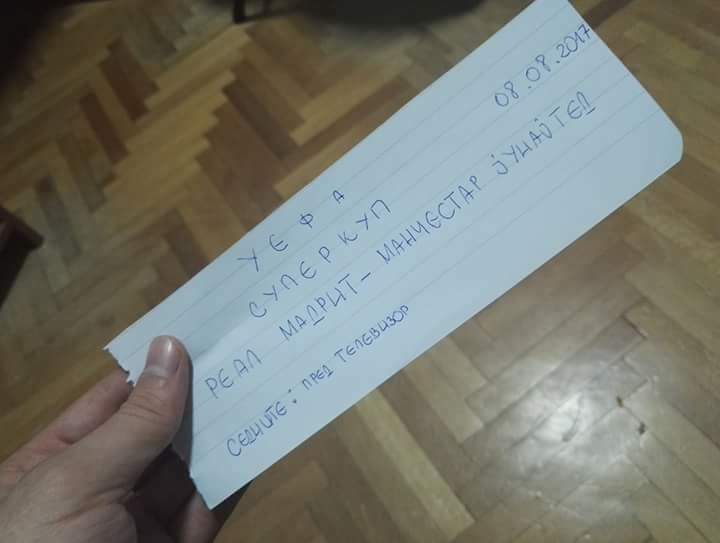 08.08.2017
УЕФА
СУПЕР КУП
РЕАЛ МАДРИТ - МАНЧЕСТАР ЈУНАЈТЕД
СЕДИШТЕ: ПРЕД ТЕЛЕВИЗОР